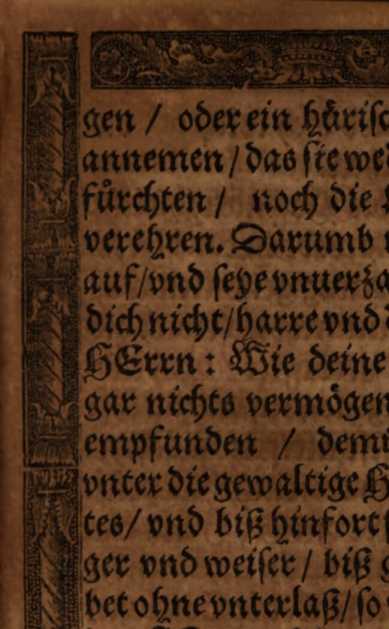 gen / oder ein härisc
annemen / das sie we
fürchten / noch die
verehren. Darumb
auf / vnd seye vnuerza
dich nicht / harre vnd
HErrn: Wie deine
gar nichts vermögen
empfunden / demi
vnter die gewaltige H
tes / vnd biß hinfort
ger vnd weiser / biß
bet ohne vnterlaß / so